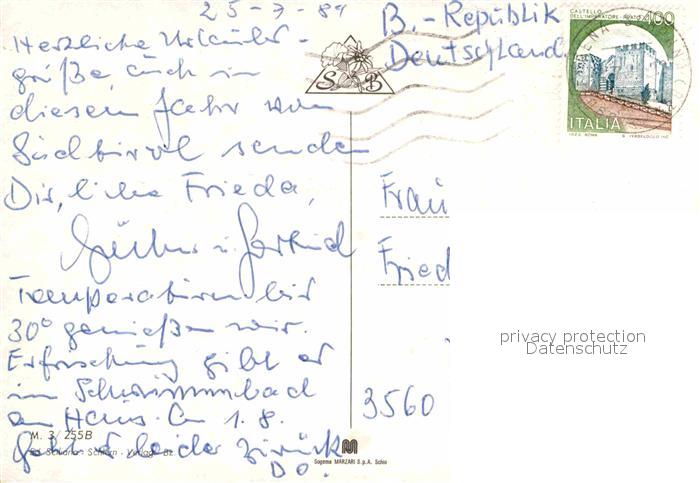 25-7-89
Herzliche Urlaubs-
grüße, auch in
diesem Jahr von
Südtirol senden
Dir, liebe Frieda,
Günther u. Gertrud
Temperaturen bis
30° genießen wir.
Erfrischung gibt es
im Schwimmbad
am Haus. Am 1.8.
geht es leider zurück
DO.
M. 3/255B
Schlern - Verlag Bz.
S B
Sogema MARZARI S.p.A. Schio
B.-Republik
Deutschland
CASTELLO
DELL'IMPERATORE - PRATO 400
ITALIA
Frau
Fried
3560
privacy protection
Datenschutz